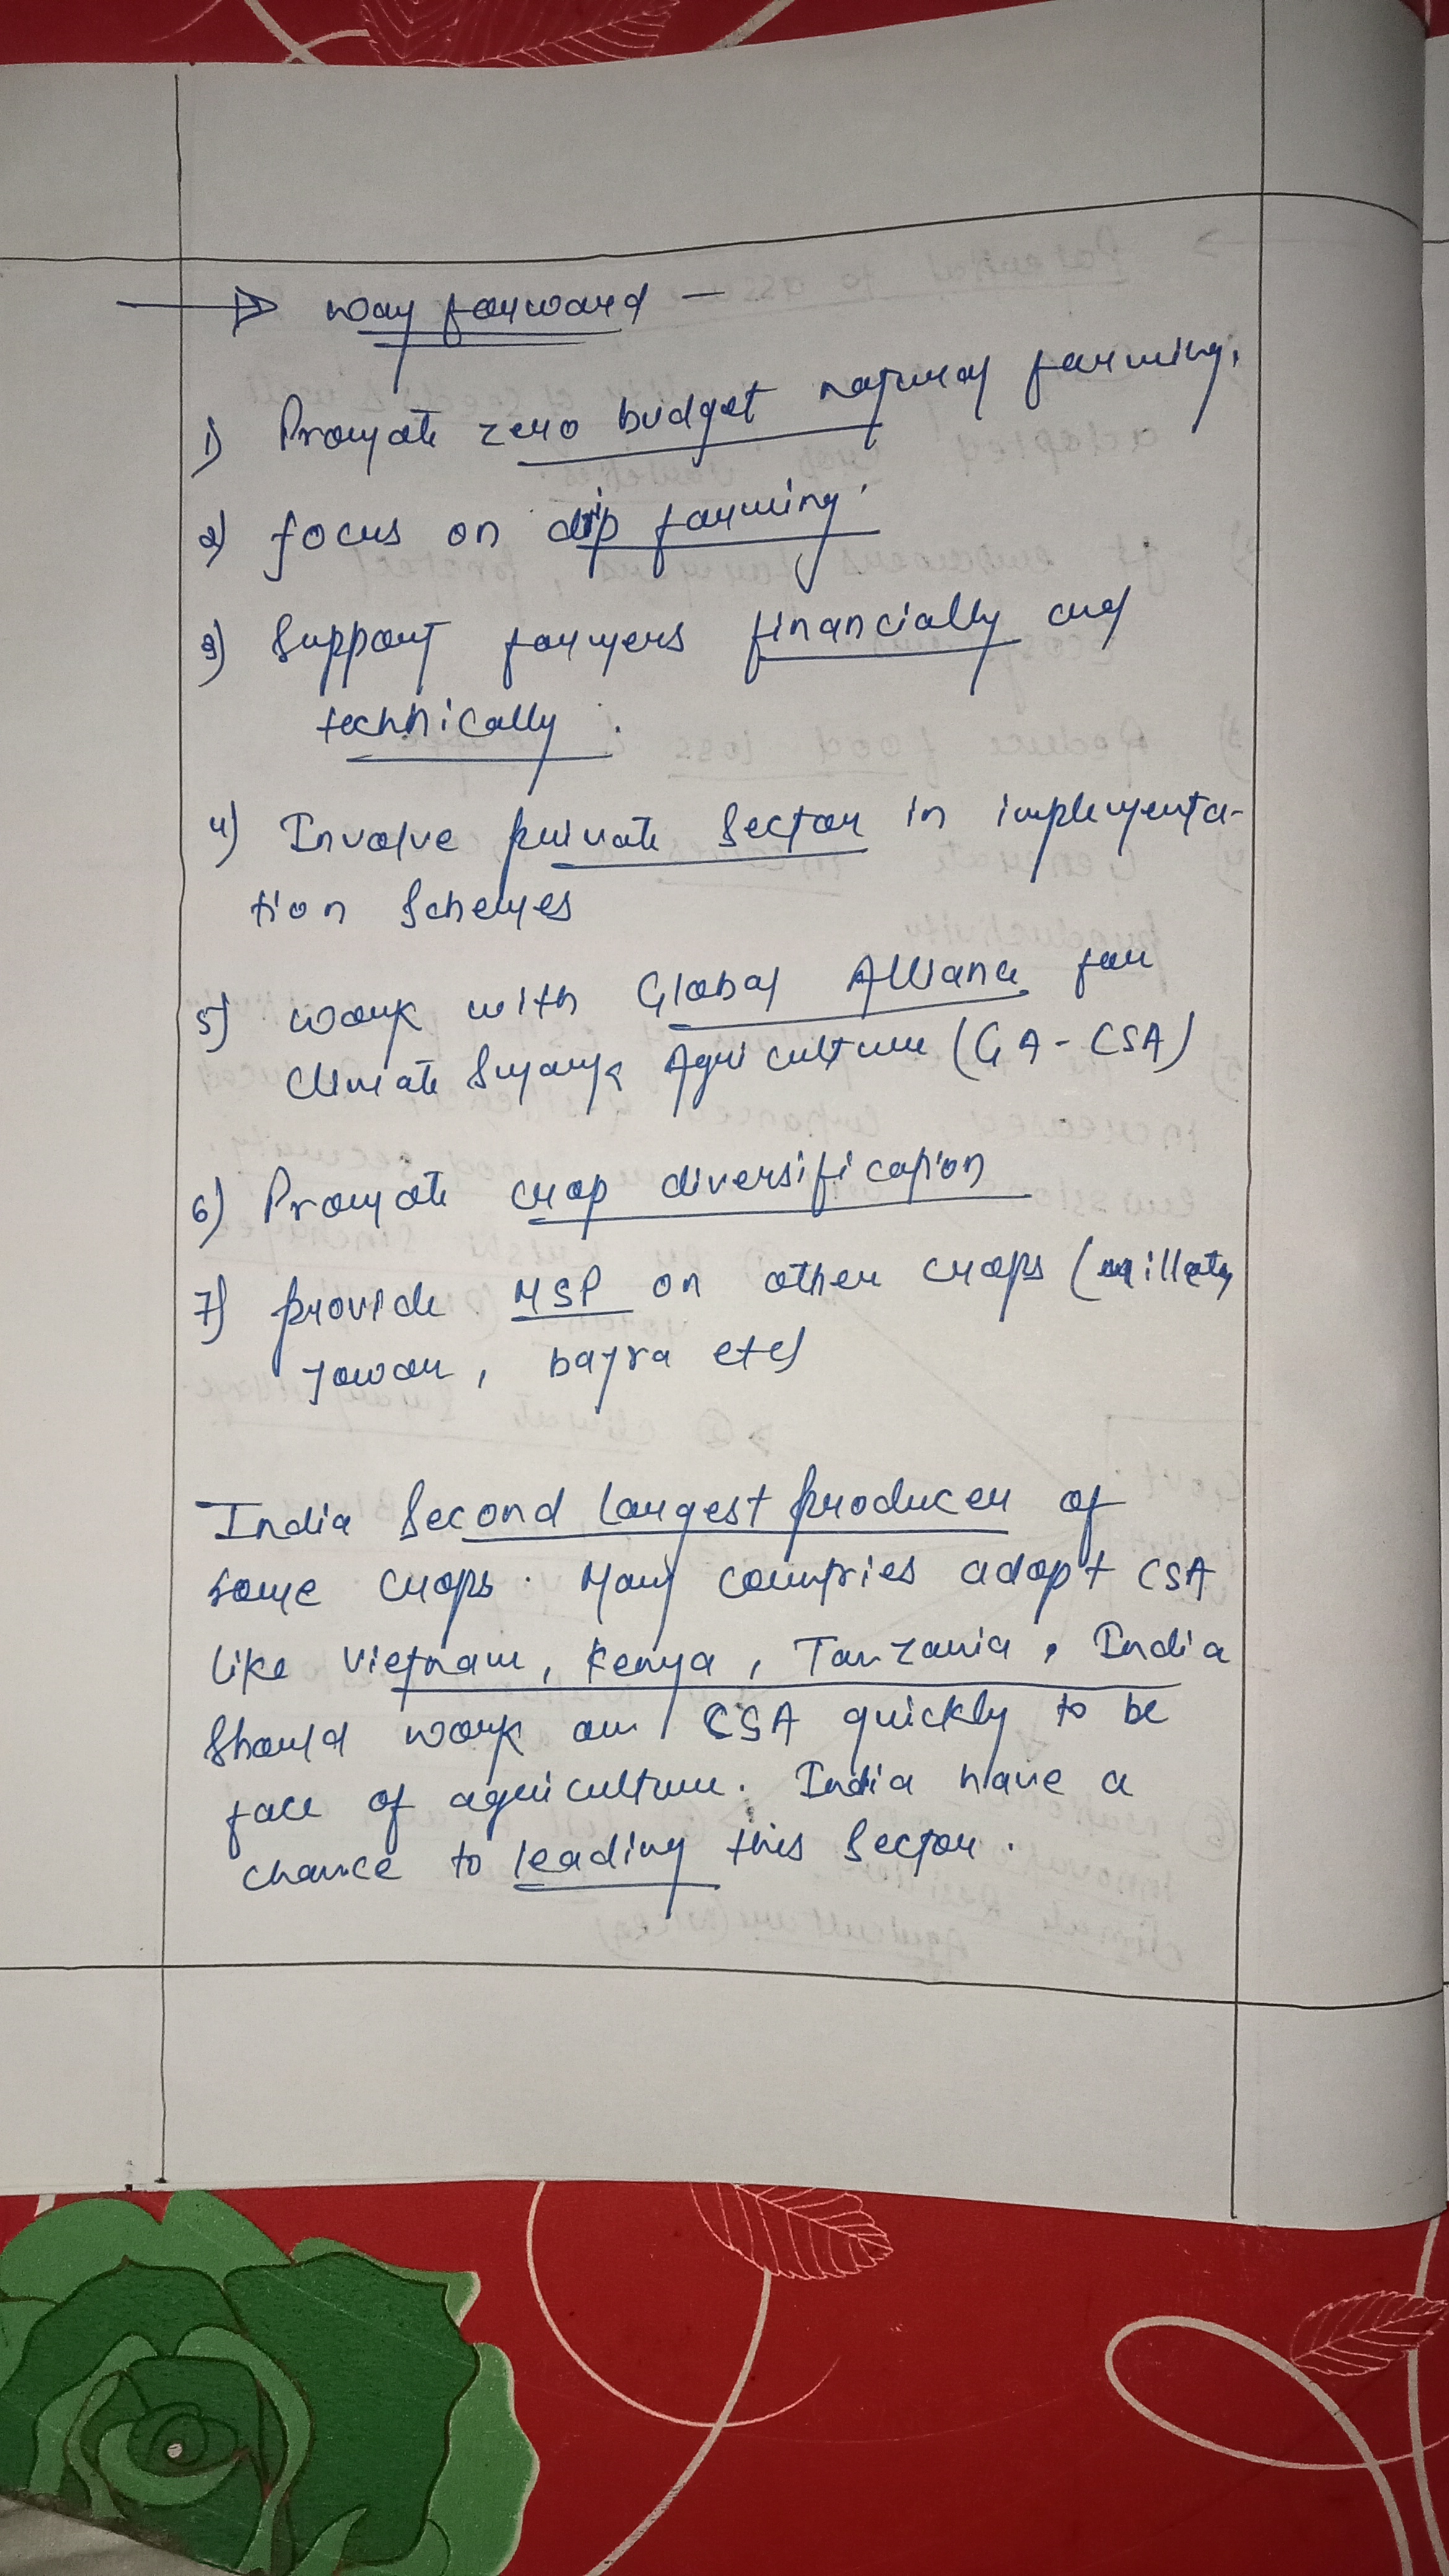 → Way forward —
1) Promote zero budget natural farming.
2) focus on drip farming.
3) Support farmers financially and
technically.
4) Involve private sector in implementa-
tion Schemes
5) work with Global Alliance for
Climate Smart Agriculture (GA-CSA)
6) Promote crop diversification
7) provide MSP on other crops (millets,
Jowar, bajra etc)
India Second largest producer of
some crops. Many countries adopt CSA
like Vietnam, Kenya, Tanzania. India
should work on CSA quickly to be
face of agriculture. India have a
chance to leading this Sector.